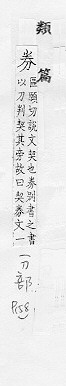 類篇
券
區願切說文契也券別書之書
以刀判契其旁故曰契券文一
刀部.
P158.